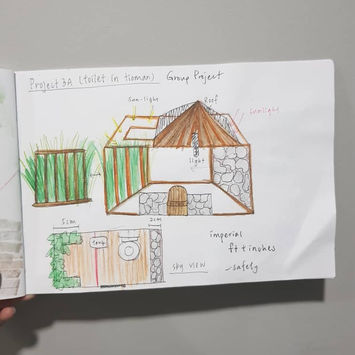 Project 3A (toilet in tioman) Group Project
Sun-light
Roof
Sunlight
light
5cm
2cm
imperial
ft + inches
-safety
SKY VIEW